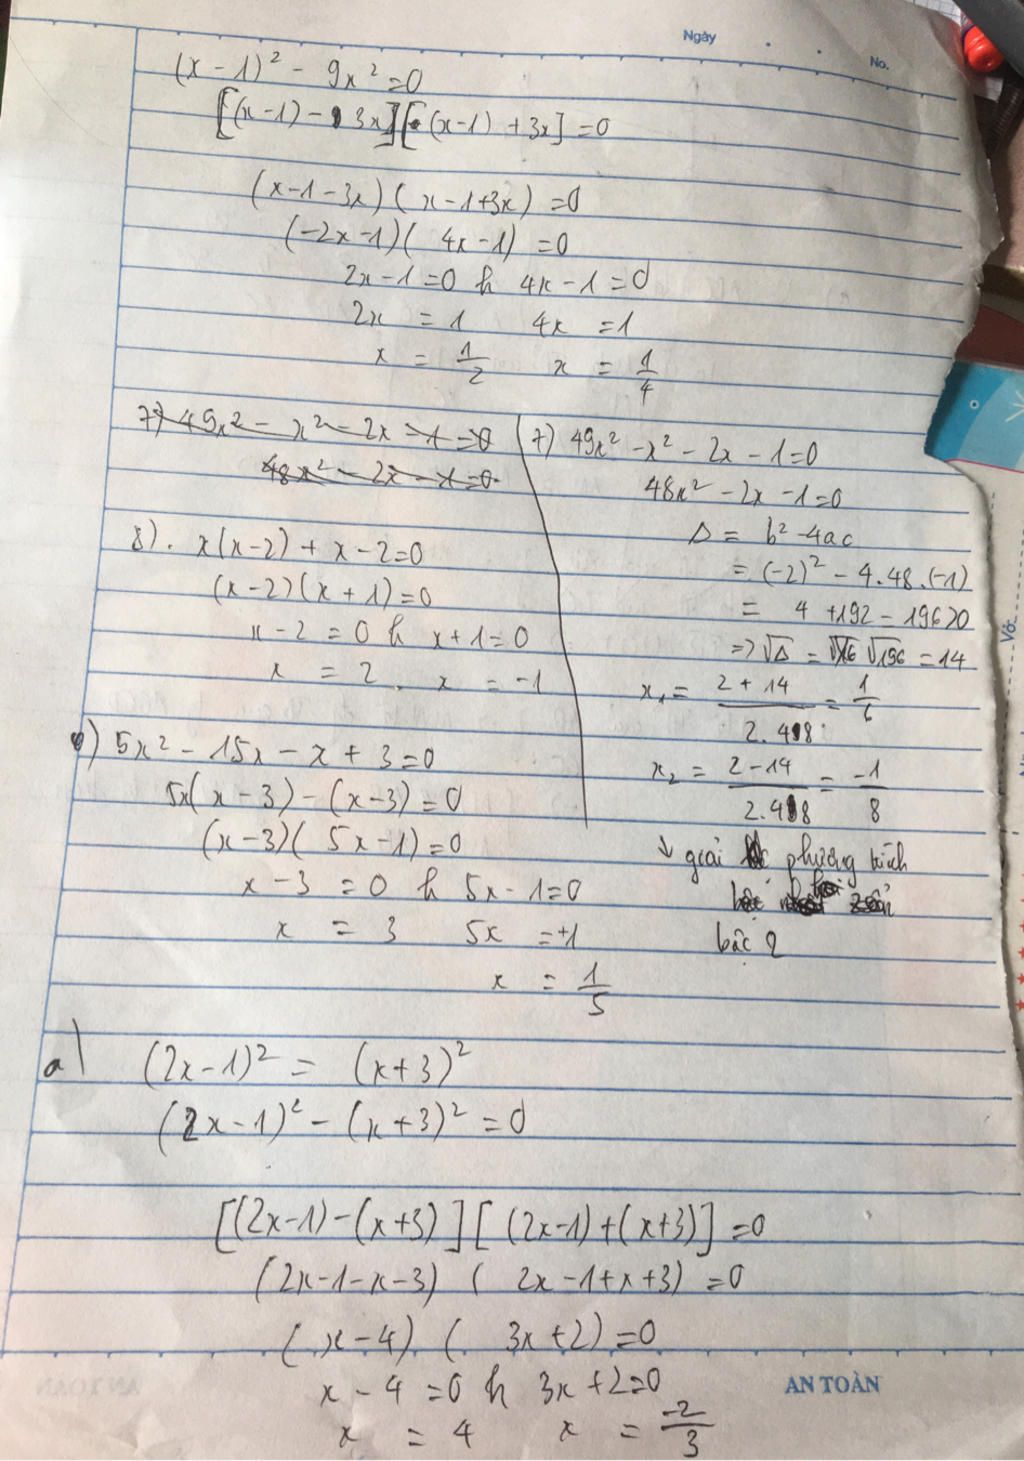 Ngày
No.
(x - 1)² - 9x² = 0
[(x-1) - 3x][(x-1) + 3x] = 0
(x-1-3x)(x-1+3x) = 0
(-2x-1)(4x-1) = 0
2x-1=0 h 4x-1=0
2x = 1 4x = 1
x = 1/2 x = 1/4
7) 49x² - x² - 2x - 1 = 0
48x² - 2x - 1 = 0
8). x(x-2) + x-2=0
(x-2)(x+1)=0
x-2 = 0 h x+1=0
x = 2. x = -1
) 5x² - 15x - x + 3 = 0
5x(x-3) - (x-3) = 0
(x-3)(5x-1)=0
x-3 = 0 h 5x-1=0
x = 3 5x = +1
x = 1/5
7) 49x² - x² - 2x - 1=0
48x² - 2x - 1=0
Δ = b² - 4ac
= (-2)² - 4.48.(-1)
= 4 + 192 = 196>0
=> √Δ = √196 = 14
x₁ = (2 + 14)/(2.48) = 1/6
x₂ = (2 - 14)/(2.48) = -1/8
↓ giải phương trình
bậc 2
a) (2x-1)² = (x+3)²
(2x-1)² - (x+3)² = 0
[(2x-1)-(x+3)][(2x-1)+(x+3)] = 0
(2x-1-x-3) (2x-1+x+3) = 0
(x-4) (3x+2)=0
x-4 =0 h 3x+2=0
x = 4 x = -2/3
AN TOÀN
Vở: